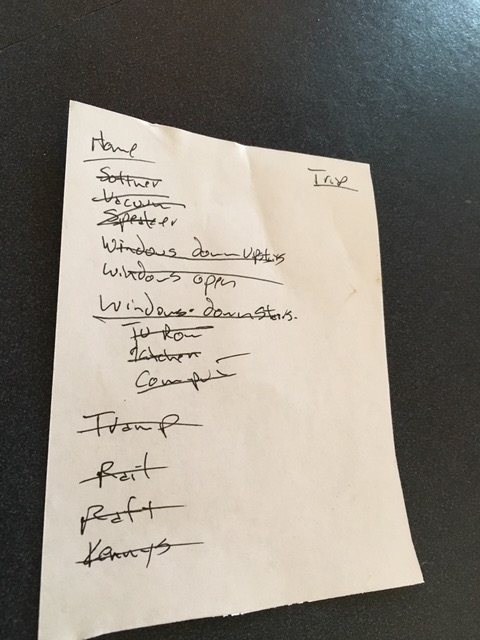 Home
Trip
Softner
Vacuum
Speaker
Windows down upstairs
Windows open
Windows downstairs.
TV Room
Kitchen
Tramp
Rail
Raft
Kennys